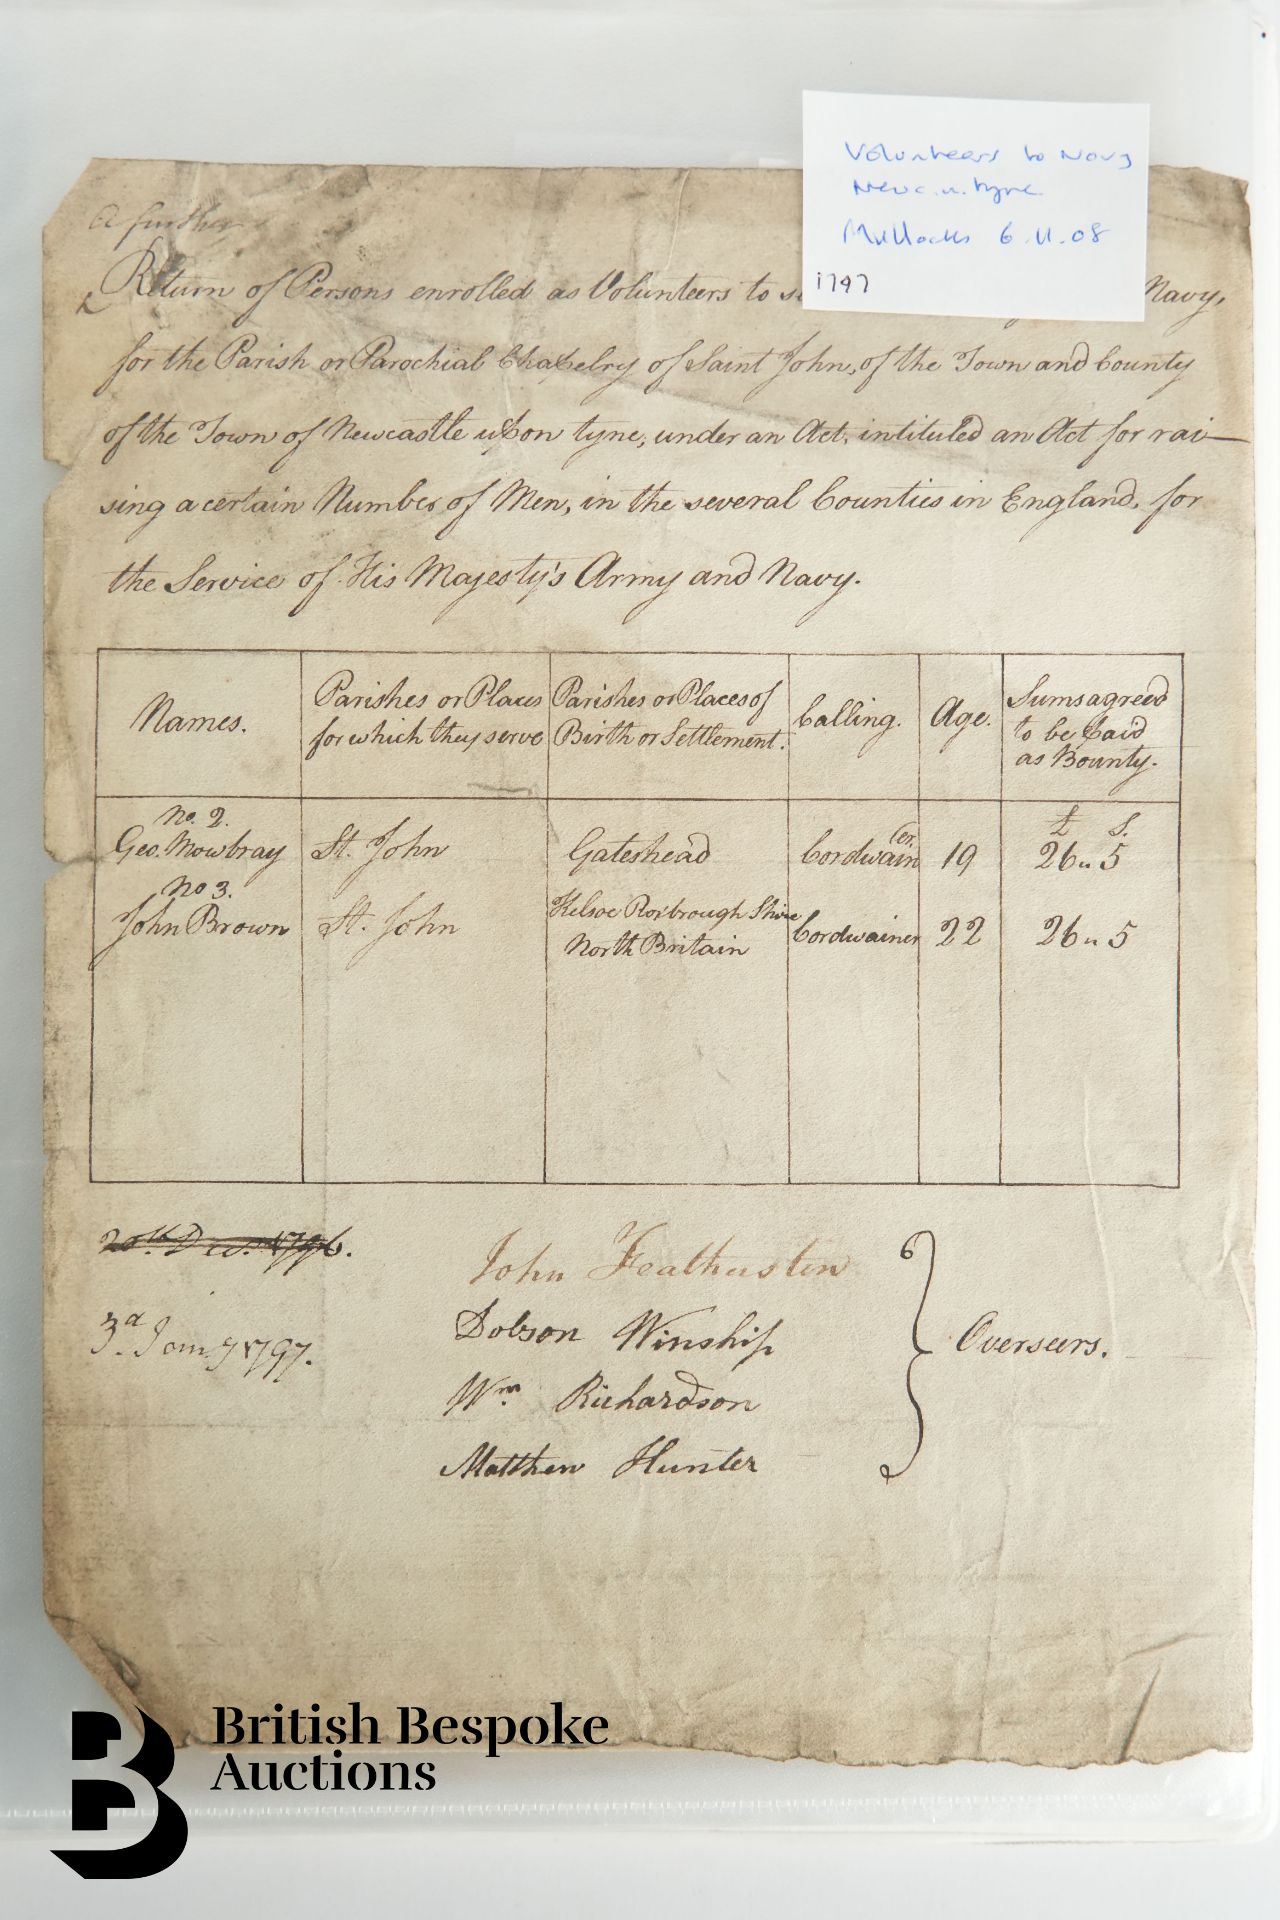 Volunteers to Navy
Newc. u. tyne
Mullocks 6.11.08
1797
A further
Return of Persons enrolled as Volunteers to Navy,
for the Parish or Parochial Chapelry of Saint John, of the Town and County
of the Town of Newcastle upon tyne, under an Act, intituled an Act for rai—
sing a certain Number of Men, in the several Counties in England, for
the Service of His Majesty's Army and Navy.
Names. Parishes or Places for which they serve Parishes or Places of Birth or Settlement. Calling. Age. Sums agreed to be paid as Bounty.
No. 2. £ S.
Geo. Mowbray St. John Gateshead Cordwainer 19 26 " 5
No 3.
John Brown St. John Kelsoe Roxbrough Shire North Britain Cordwainer 22 26 " 5
20th Dec. 1796.
3d. Jany 1797.
John Featherston
Dobson Winship
Wm. Richardson
Matthew Hunter
Overseers.
British Bespoke
Auctions
B